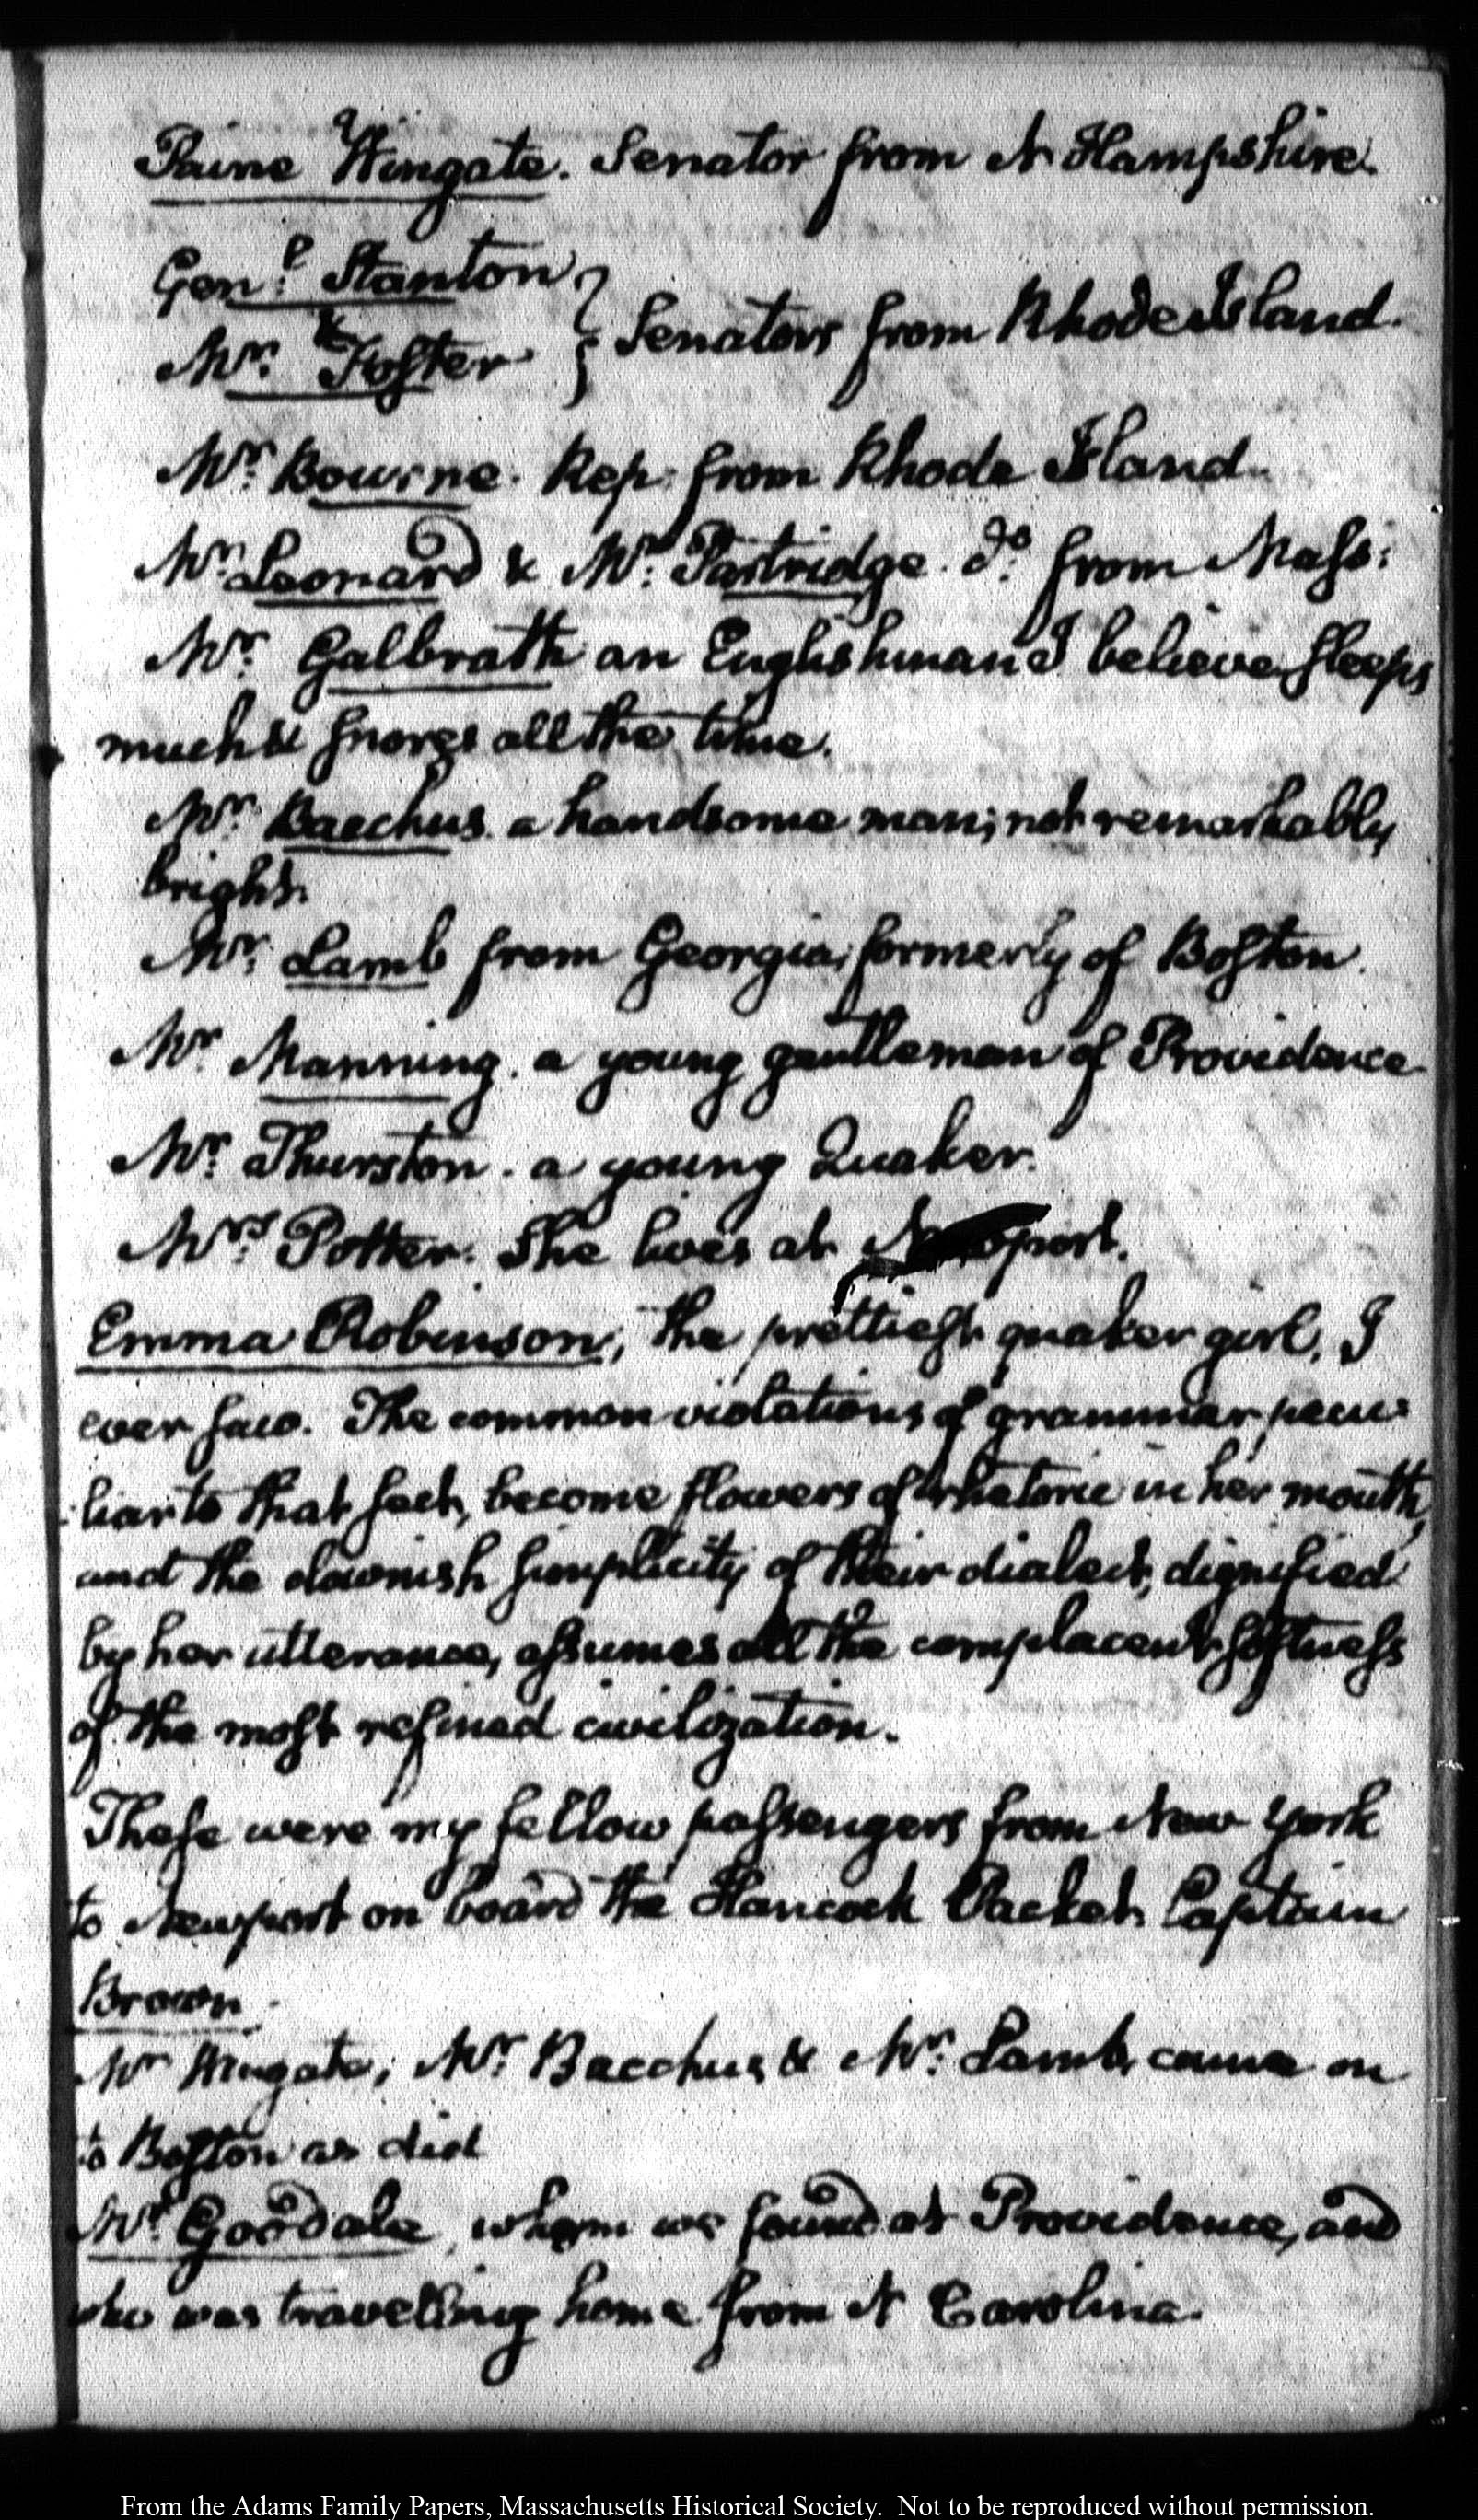 Paine Wingate. Senator from N Hampshire.
Gen:l Stanton
&
Mr. Foster } Senators from Rhode Island.
Mr. Bourne. Rep: from Rhode Island.
Mr. Leonard & Mr. Partridge. do. from Mass:
Mr. Galbrath an Englishman I believe, sleeps
much & snores all the time.
Mr. Bacchus. a handsome man; not remarkably
bright.
Mr. Lamb from Georgia, formerly of Boston.
Mr Manning. a young gentleman of Providence
Mr. Thurston. a young Quaker.
Mrs Potter. She lives at Newport.
Emma Robinson, the prettiest quaker girl, I
ever saw. The common violations of grammar, pecu:
:liar to that sect, become flowers of rhetoric in her mouth,
and the clownish simplicity of their dialect, dignified
by her utterance, assumes all the complacent softness
of the most refined civilization.
These were my fellow passengers from New York
to Newport on board the Hancock Packet. Captain
Brown.
Mr Wingate, Mr. Bacchus & Mr. Lamb, came on
to Boston as did
Mr. Goodale, whom we found at Providence, and
who was travelling home from N Carolina.
From the Adams Family Papers, Massachusetts Historical Society. Not to be reproduced without permission.